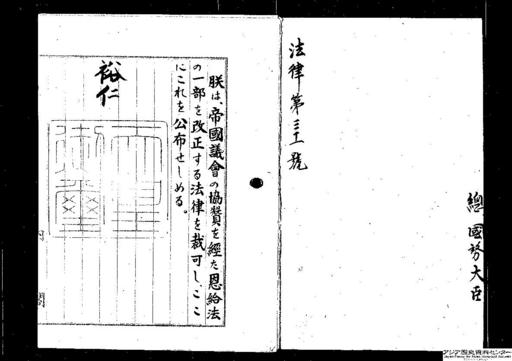 總
國務大臣
法律第三十一號
朕は、帝國議會の協賛を經た恩給法
の一部を改正する法律を裁可し、ここ
にこれを公布せしめる。
裕仁
天皇
御璽
アジア歴史資料センター